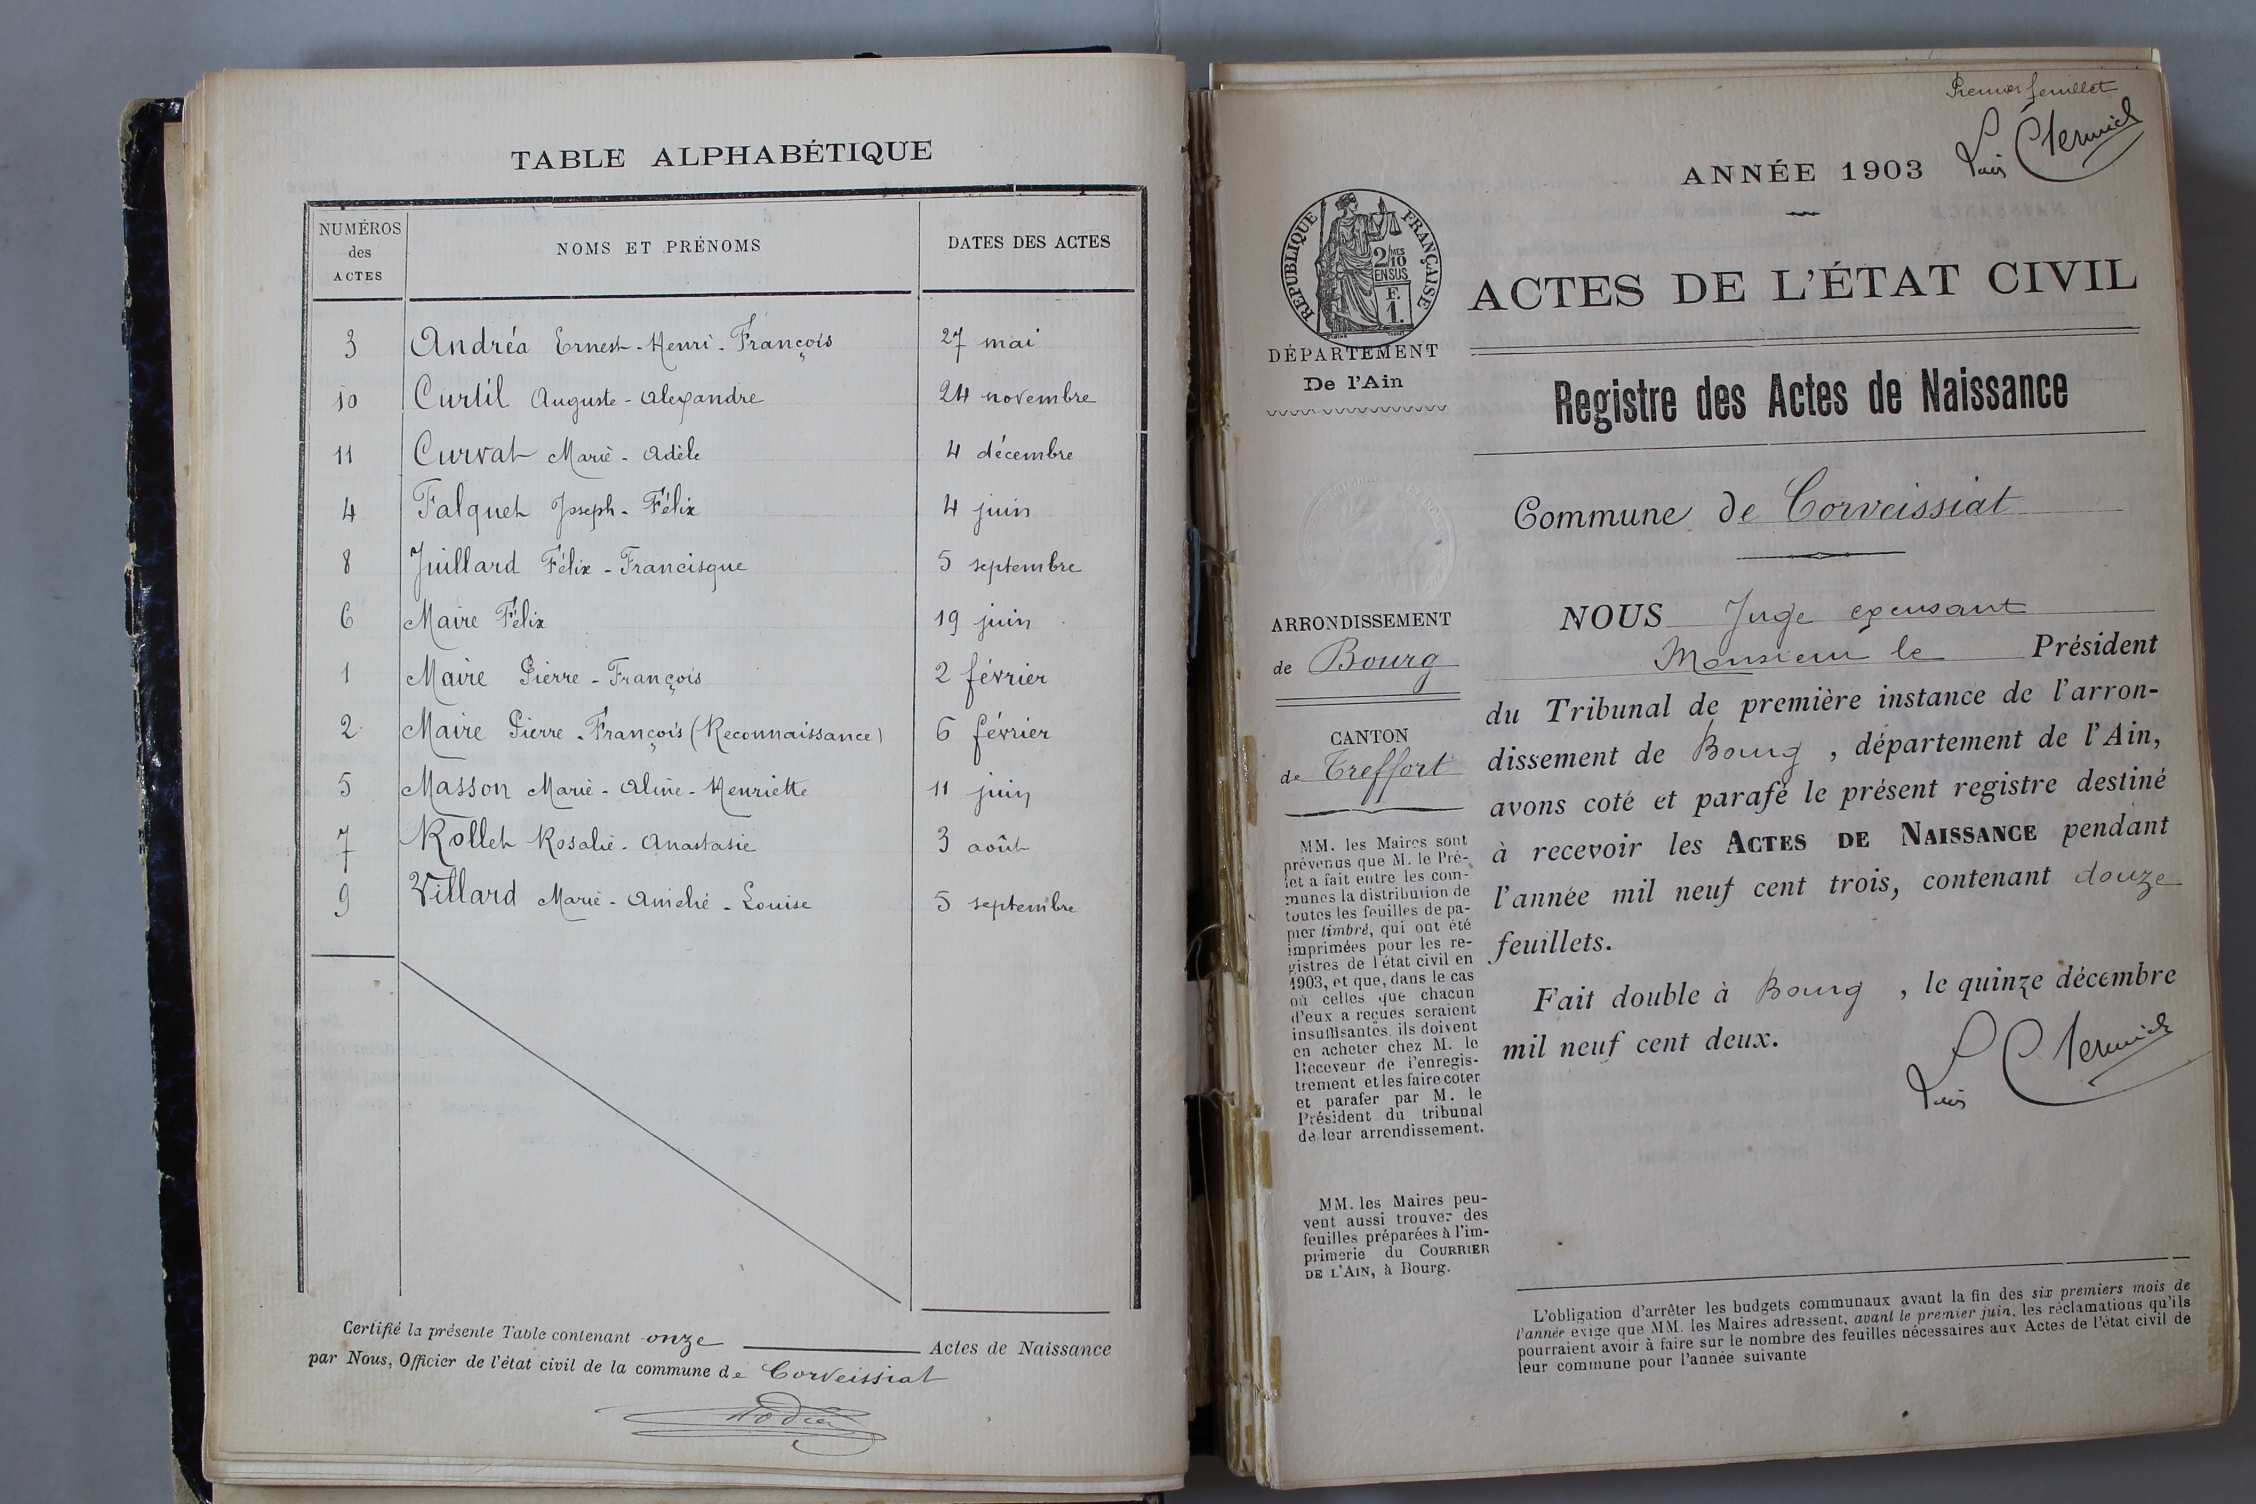 TABLE ALPHABÉTIQUE
NUMÉROS
des
ACTES
NOMS ET PRÉNOMS
DATES DES ACTES
3 Andréa Ernest-Henri-François 27 mai
10 Curtil Auguste-Alexandre 24 novembre
11 Curvat Marie-Adèle 4 décembre
4 Falquet Joseph-Félix 4 juin
8 Juillard Félix-Francisque 5 septembre
6 Maire Félix 19 juin
1 Maire Pierre-François 2 février
2 Maire Pierre-François (Reconnaissance) 6 février
5 Masson Marie-Aline-Henriette 11 juin
7 Rollet Rosalie-Anastasie 3 août
9 Villard Marie-Amélie-Louise 5 septembre
Certifié la présente Table contenant onze Actes de Naissance
par Nous, Officier de l'état civil de la commune de Corveissiat
Premier feuillet
ANNÉE 1903
RÉPUBLIQUE FRANÇAISE
2/10MES
EN SUS
F.
1.
ACTES DE L'ÉTAT CIVIL
DÉPARTEMENT
De l'Ain
Registre des Actes de Naissance
Commune de Corveissiat
ARRONDISSEMENT
de Bourg
CANTON
de Treffort
MM. les Maires sont
prévenus que M. le Pré-
fet a fait entre les com-
munes la distribution de
toutes les feuilles de pa-
pier timbré, qui ont été
imprimées pour les re-
gistres de l'état civil en
1903, et que, dans le cas
où celles que chacun
d'eux a reçues seraient
insuffisantes, ils doivent
en acheter chez M. le
Receveur de l'enregis-
trement et les faire coter
et parafer par M. le
Président du tribunal
de leur arrondissement.
MM. les Maires peu-
vent aussi trouver des
feuilles préparées à l'im-
primerie du COURRIER
DE L'AIN, à Bourg.
NOUS Juge excusant
Monsieur le Président
du Tribunal de première instance de l'arron-
dissement de Bourg, département de l'Ain,
avons coté et parafé le présent registre destiné
à recevoir les ACTES DE NAISSANCE pendant
l'année mil neuf cent trois, contenant douze
feuillets.
Fait double à Bourg, le quinze décembre
mil neuf cent deux.
L'obligation d'arrêter les budgets communaux avant la fin des six premiers mois de
l'année exige que MM. les Maires adressent, avant le premier juin, les réclamations qu'ils
pourraient avoir à faire sur le nombre des feuilles nécessaires aux Actes de l'état civil de
leur commune pour l'année suivante